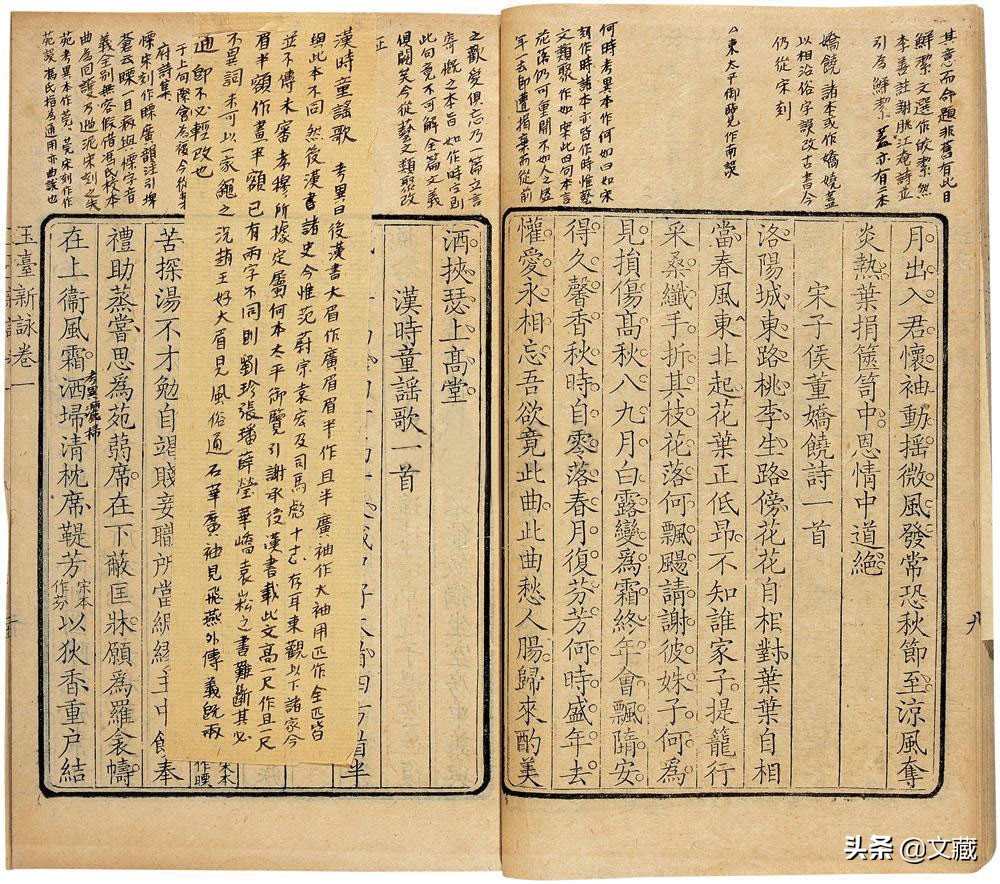 其意而命題非舊有此目
鮮潔文選作皎潔然
李善註謝朓江淹詩並
引為鮮潔蓋亦有二本
嬌饒諸本或作嬌嬈蓋
以相沿俗字誤改古書今
仍從宋刻
東太平御覽作南誤
何時考異本作何如曰如宋
刻作時諸本亦皆作時惟藝
文類聚作如案此四句本言
花落仍可重開不如人之盛
年一去即遭捐棄而從前
月出入君懷袖動揺微風發常恐秋節至涼風奪
炎熱葉捐篋笥中恩情中道絶
宋子侯董嬌饒詩一首
洛陽城東路桃李生路傍花花自相對葉葉自相
當春風東北起花葉正低昻不知誰家子提籠行
采桑纖手折其枝花落何飄颺請謝彼姝子何為
見損傷髙秋八九月白露變為霜終年會飄隋安
得久馨香秋時自零落春月復芬芳何時盛年去
懽愛永相忘吾欲竟此曲此曲愁人腸歸來酌美
九
之歡愛俱忘乃一篇立言
寄慨之本旨如作時字則
此句竟不可解全篇文義
俱闕矣今從藝文類聚改
正
酒挾瑟上髙堂
漢時童謡歌一首
漢時童謡歌 考異曰後漢書大眉作廣眉眉半作且半廣袖作大袖用匹作全匹皆
與此本不同然後漢書諸史今惟范蔚宗袁宏及司馬彪十志存耳東觀以下諸家今
並不傳未審考穆所據定屬何本太平御覽引謝承後漢書載此文髙一尺作且一尺
眉半額作畫半額已有兩字不同則劉珍張璠薛瑩華嶠袁崧之書難斷其必
不異詞未可以一家繩之況趙王好大眉見風俗通石華廣袖見飛燕外傳義既兩
通即不必輕改也
首半
于上句際會為複今從樂
府詩集
慄宋刻作㗚廣韻注引埤
蒼云㗚一目病與慄字音
義全别無容假借馮氏校本
曲為回護乃過泥宋刻之失
苑考異本作莞莞宋刻作
苑誤馮氏指為通用亦曲説也
宋本
作㗚
苦探湯不才勉自竭賤妾職所當綢繆主中饋奉
禮助蒸嘗思為苑蒻席在下蔽匡牀願為羅衾幬
在上衞風霜洒埽清枕席鞮芬以狄香重户結
考異灑掃
宋本
作芬
玉臺新詠卷一
头条 @文藏